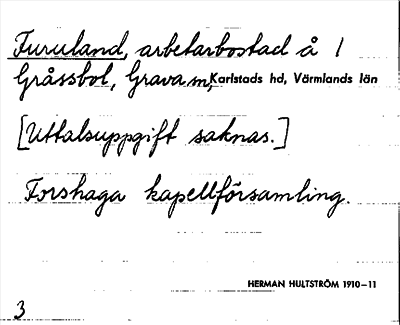 Furuland, arbetarbostad å 1
Gråssbol, Grava sn, Karlstads hd, Värmlands län
[Uttalsuppgift saknas.]
Forshaga kapellförsamling.
HERMAN HULTSTRÖM 1910–11
3